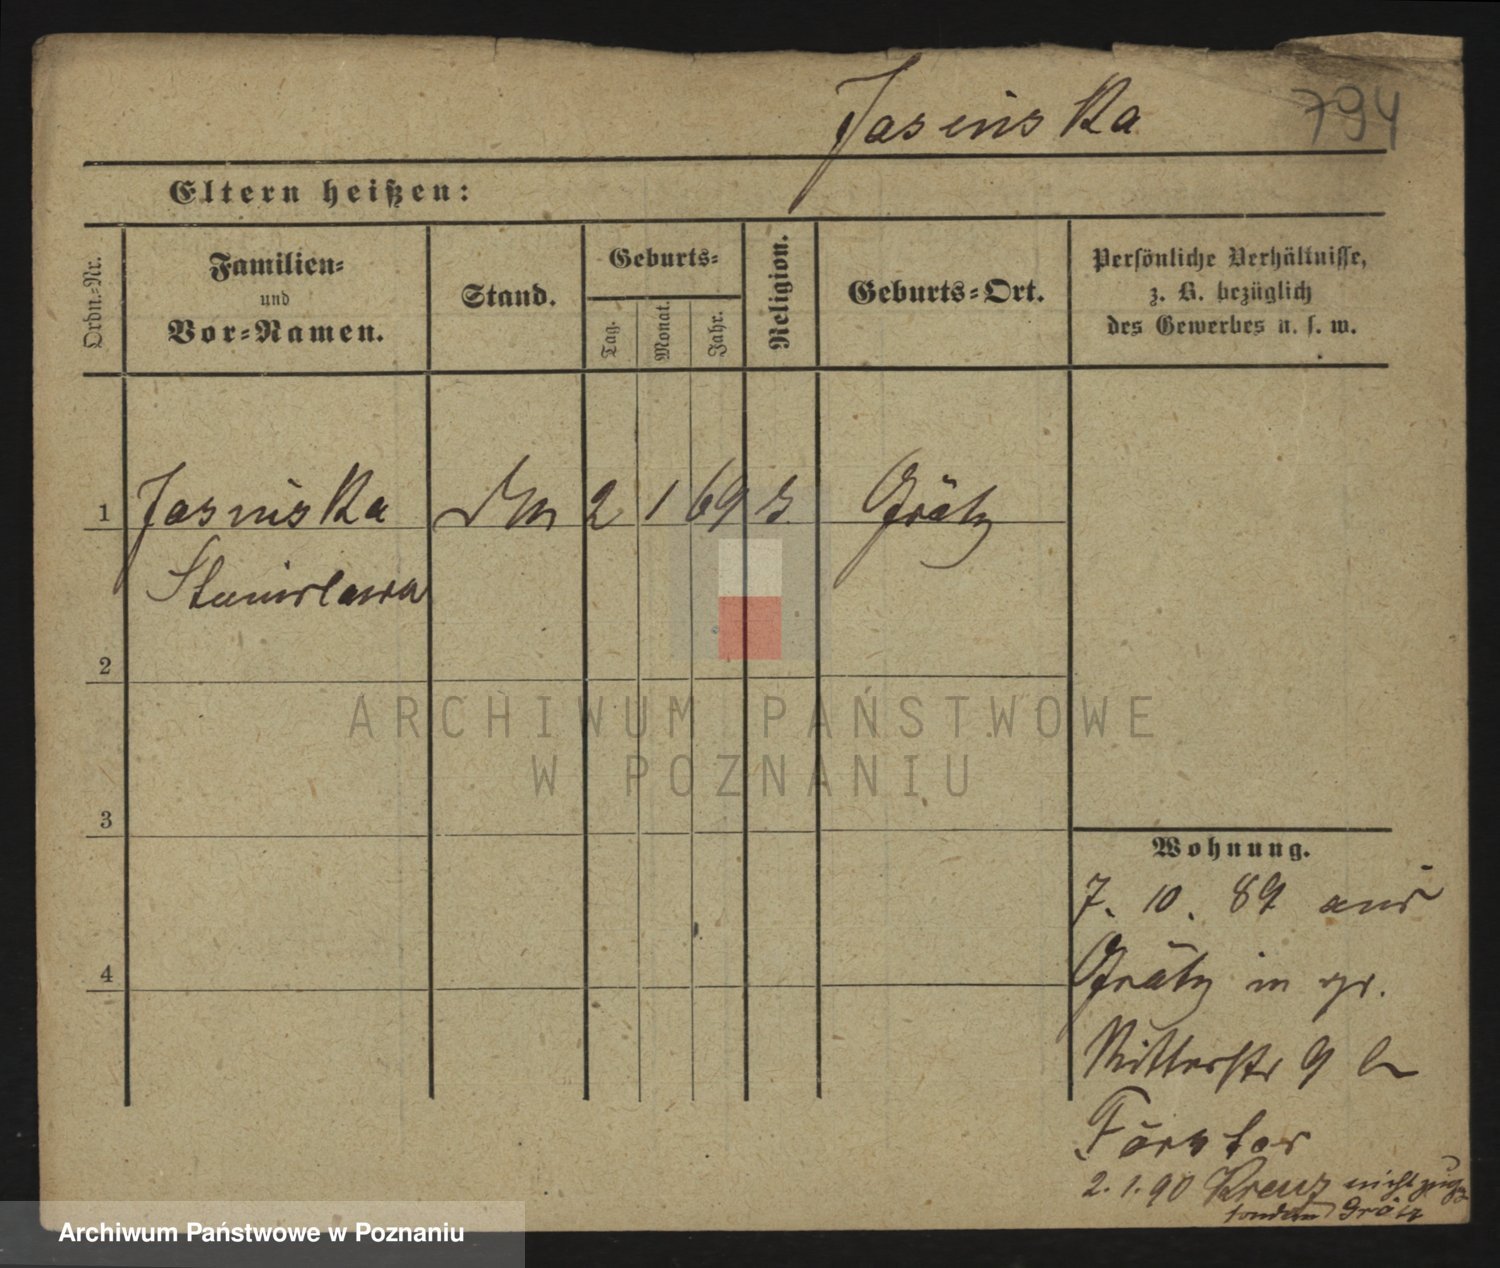 Jasinska
794
Eltern heißen:
Ordn.-Nr.
Familien-
und
Vor-Namen.
Stand.
Geburts-
Tag.
Monat.
Jahr.
Religion.
Geburts-Ort.
Persönliche Verhältnisse,
z. B. bezüglich
des Gewerbes u. s. w.
1 Jasinska 2 1 69 Grätz
Stanislawa
2
3
4
ARCHIWUM PAŃSTWOWE
W POZNANIU
Wohnung.
7. 10. 89 aus
Grätz in gr.
Ritterstr 9 b
Förster
2. 1. 90 Kreuz nicht
sondern Grätz
Archiwum Państwowe w Poznaniu